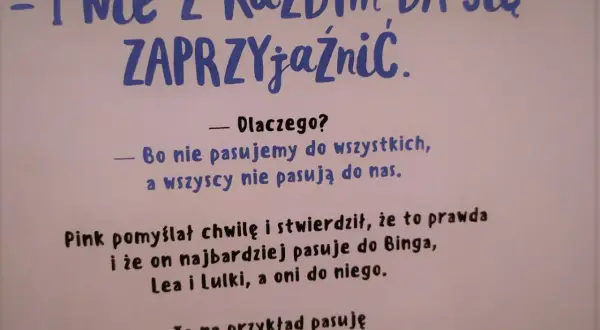 – I NIE Z KAŻDYM DA SIĘ
ZAPRZYjaŹniĆ.
— Dlaczego?
— Bo nie pasujemy do wszystkich,
a wszyscy nie pasują do nas.
Pink pomyślał chwilę i stwierdził, że to prawda
i że on najbardziej pasuje do Binga,
Lea i Lulki, a oni do niego.
na przykład pasuję